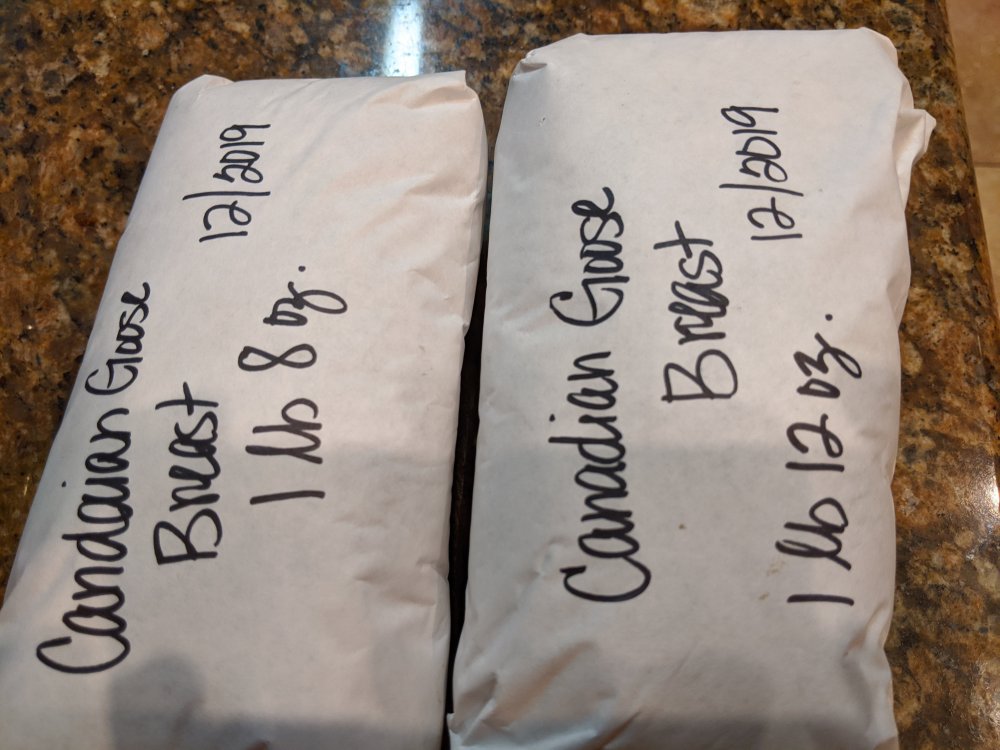 Candaian Goose
Breast
1 lb 8 oz.
12/2019
Canadian Goose
Breast
1 lb 12 oz.
12/2019